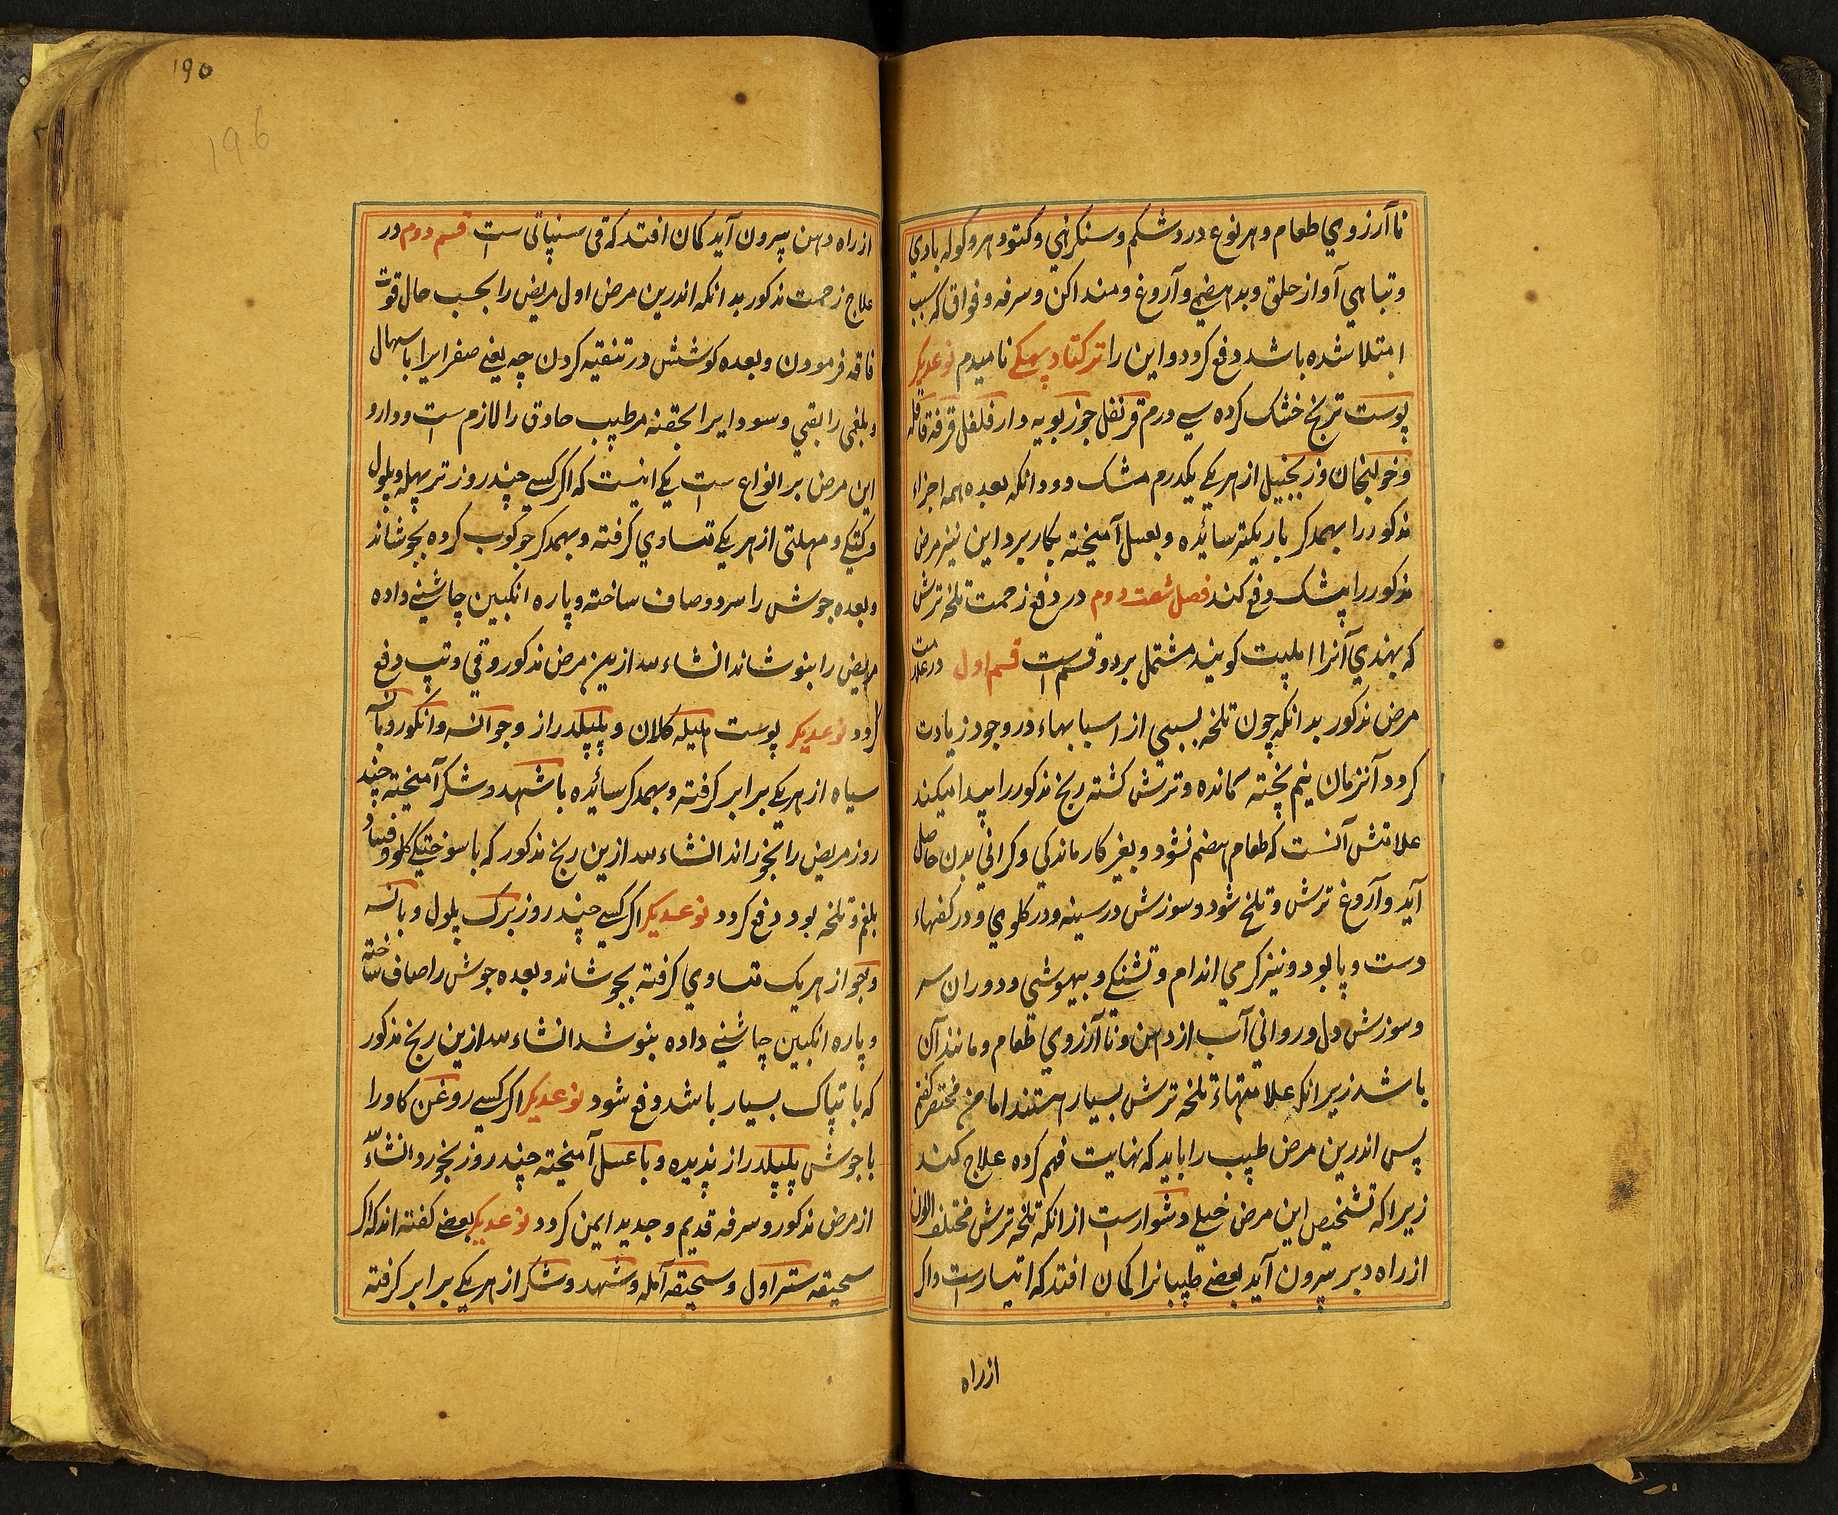 نا آرزوي طعام و هر نوع درد شکم و سنکرهني و کتو و هر و کوله بادي
و تباهي آواز حلق و بدهضمي و آروغ و منداکن و سرفه و فواق که سبب
امتلا شده باشد دفع کرود و این را نامیدم نوعدیکر
پوست ترنج خشک کرده سه درم قرنفل جوز بویه دار فلفل قرفه قاقله
و خولنجان و زنجبیل از هر یکے یکدرم مشک دو دانکه بعده همه اجزاء
مذکور را بهمدکر باریکتر سائیده و بعسل آمیخته بکار برد این نیز مرض
مذکور را بیشک دفع کند فصل شصت دوم در دفع زحمت تلخه ترش
که بهندي آنرا املپت کویند مشتمل بر دو قسم است قسم اول در علامت
مرض مذکور بدانکه چون تلخه بسببي از اسبابهاء در وجود زیادت
کرود آنزمان نیم پخته کمانده و ترش کشته رنج مذکور را پیدا میکند
علامتش آنست که طعام هضم نشود و بغیر کار ماندکي و کراني بدن حاصل
آید و آروغ ترش و تلخ شود و سوزش در سینه و در کلوي و در کفهاء
دست و پا بود و نیز کرمي اندام و تشنکے و بیهوشي و دوران سر
و سوزش دل و رواني آب از دهن و نا آرزوي طعام و مانند آن
باشد زیرانکه علامتهاء تلخه ترش بسیار هستند اما من مختصر کفتم
پس اندرین مرض طبیب را باید که نهایت فهم کرده علاج کند
زیراکه تشخیص این مرض خیلے دشوار است ازانکه تلخه ترش مختلف الالوان
از راه دبر بیرون آید بعضے طبیبانرا کمان افتد که اتیسارست و اکر
از راه
۱۹۵
196
از راه دهن بیرون آید کمان افتد که قی سنپاتی ست قسم دوم در
علاج زحمت مذکور بدانکه اندرین مرض اول مریض را بحسب حال قوت
فاقه فرمودن و بعده کوشش در تنقیه کردن چه یعنے صفرا یرا باسهال
و بلغمی را بقي و سودایرا بحقنه مر طبیب حاذق را لازم است و دارو
این مرض بر انواع ست یکے اینست که اکر کسے چند روز تربهله و پلول
و کتکے و مهلتی از هر یکے متساوي کرفته و بهمدکر جوکوب کرده بجوشاند
و بعده جوش را سرد و صاف ساخته و پاره انکبین چاشنے داده
مریض را بنوشاند انشاء لله ازین مرض مذکور و قي و تپ دفع
کرود نوعدیکر پوست هلیله کلان و پلپلدراز و جوانه و انکور و بانسه
سیاه از هر یکے برابر کرفته و بهمدکر سائیده با شهد و شکر آمیخته چند
روز مریض را بخوراند انشاء لله ازین رنج مذکور که با سوختکے کلو و فساد
بلغم و تلخه بود دفع کرود نوعدیکر اکر کسے چند روز برک پلول و بانسه
و جو از هر یک متساوي کرفته بجوشاند و بعده جوش را صاف ساخته
و پاره انکبین چاشنے داده بنوشد انشاء لله ازین رنج مذکور
که با تپاک بسیار باشد دفع شود نوعدیکر اکر کسے روغن کاو را
با جوش پلپلدراز پزیده و با عسل آمیخته چند روز بخورد انشاءلله
از مرض مذکور و سرفه قدیم و جدید ایمن کرود نوعدیکر بعضے کفته اند که اکر
سحیقه ستراول و سحیقه آمله و شهد و شکر از هر یکے برابر کرفته